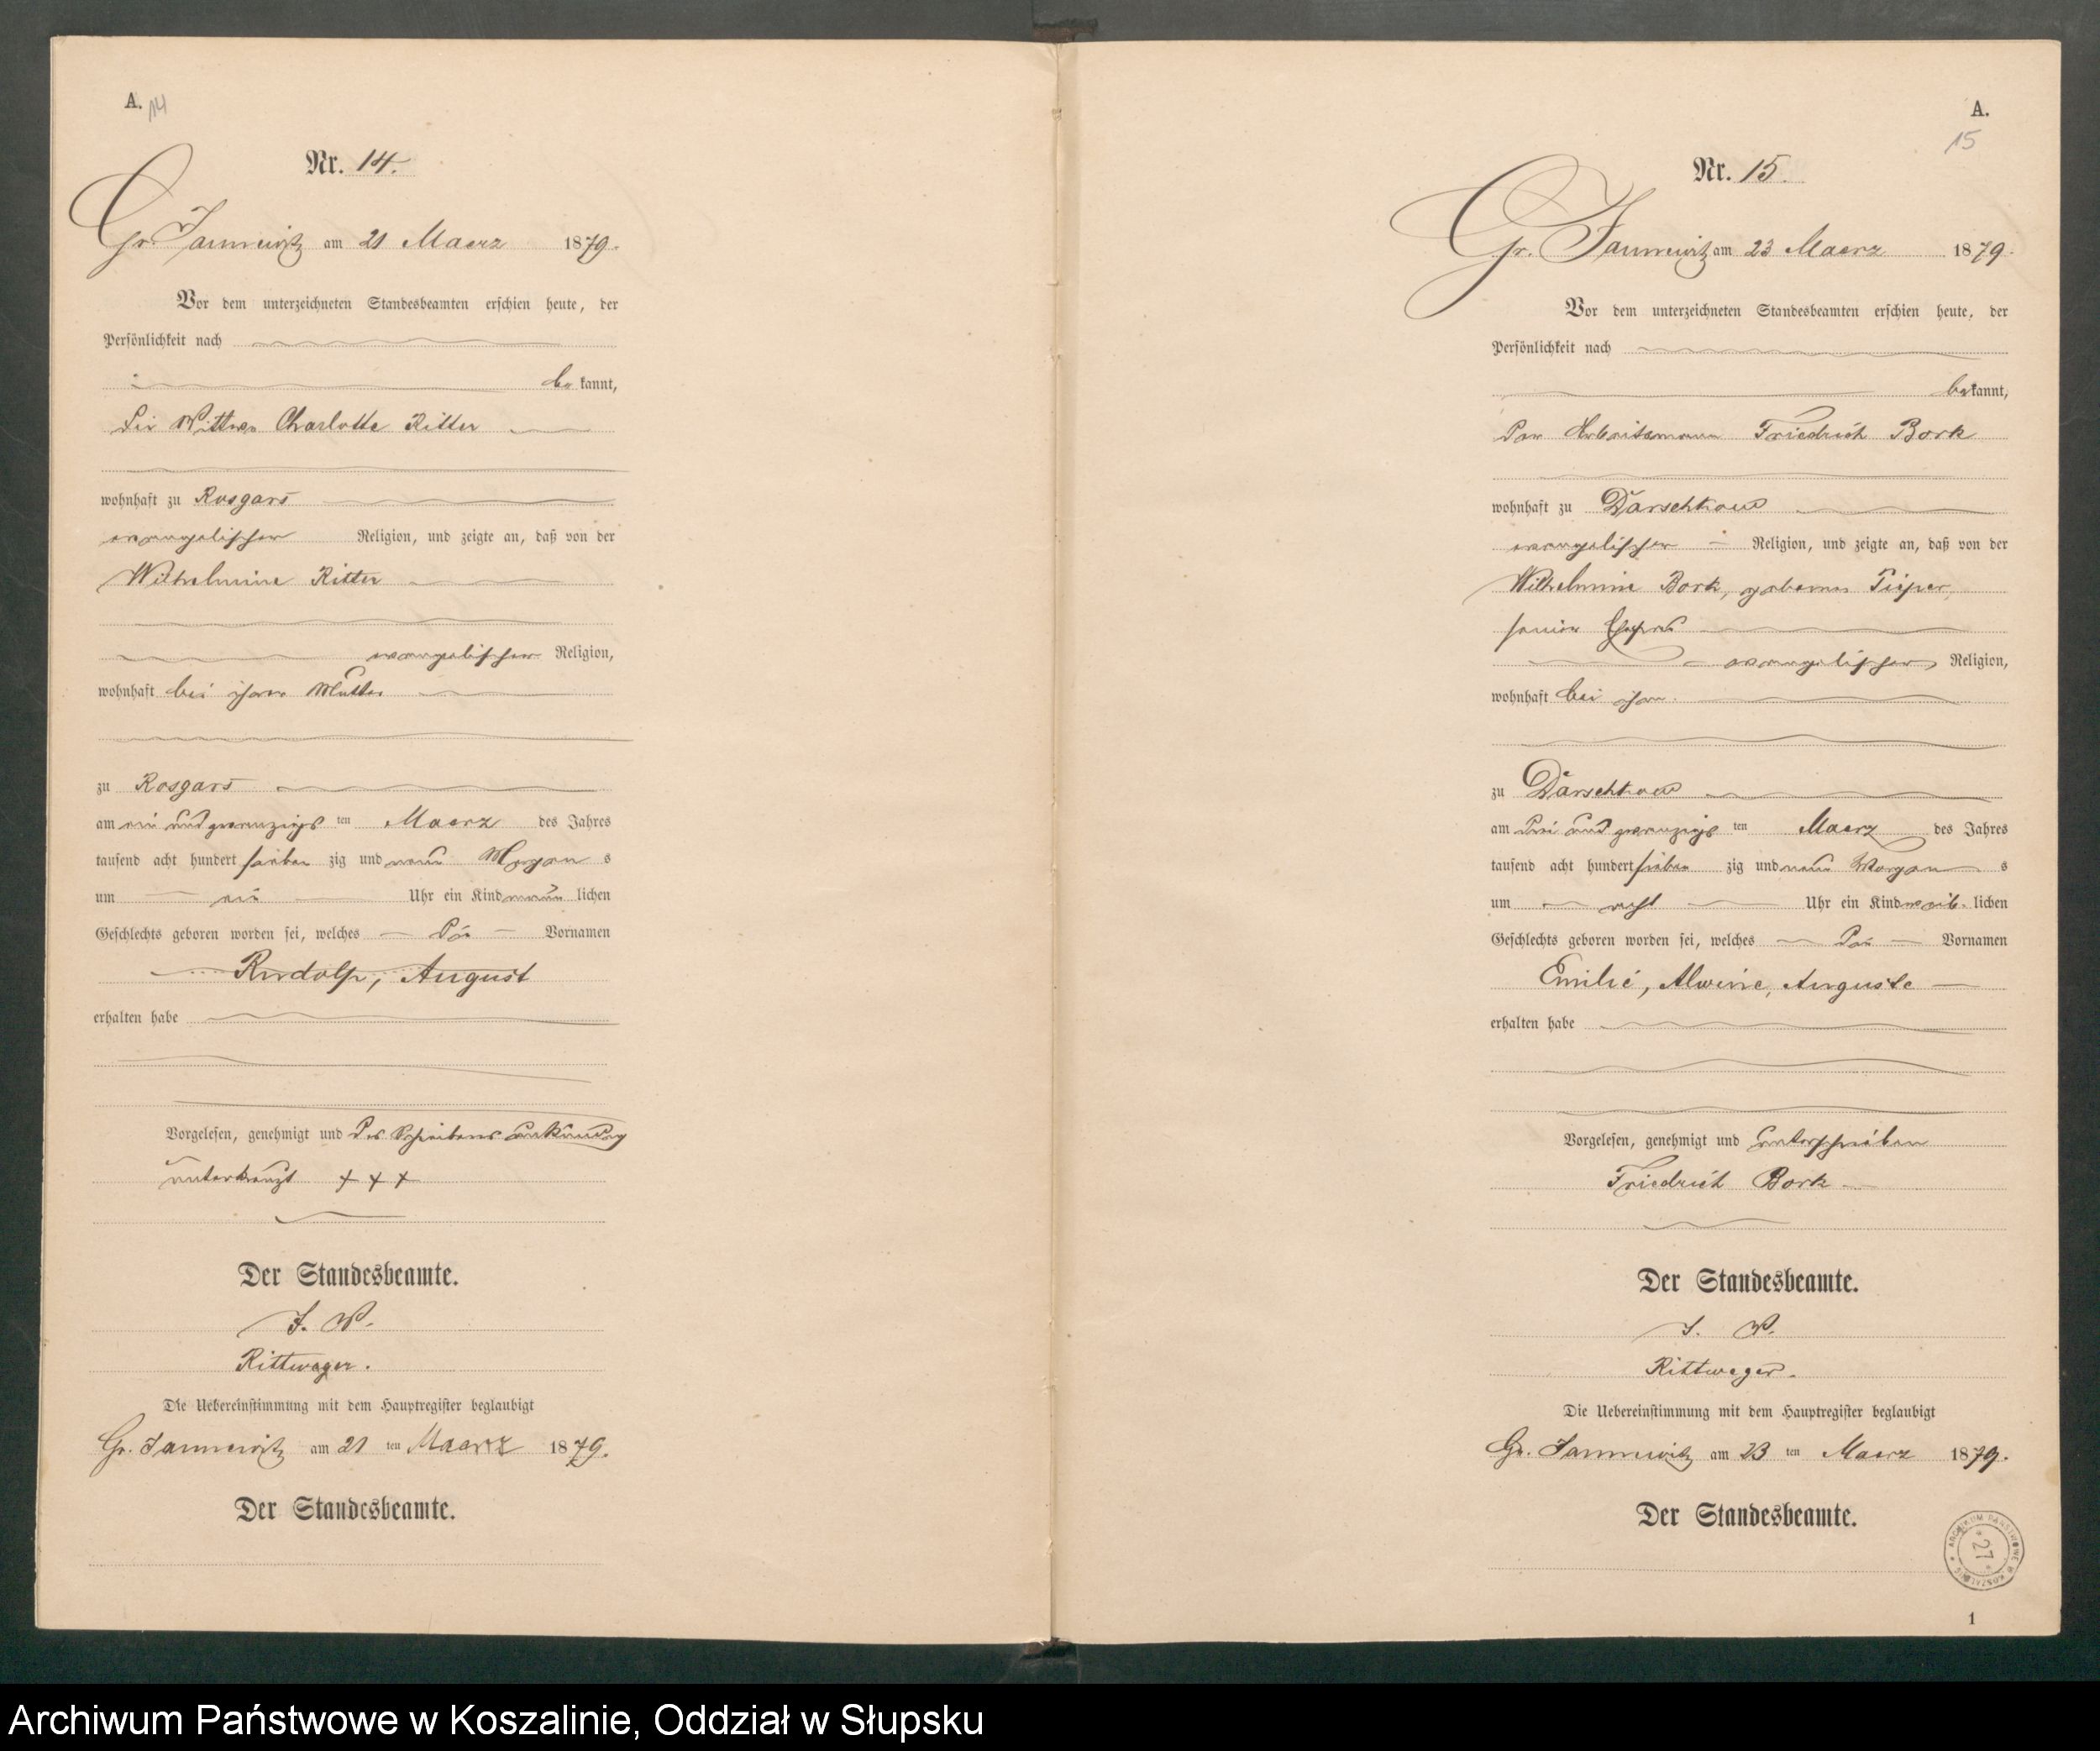 A.
14
Nr. 14.
Gr. Jannewitz am 21 Maerz 1879.
Vor dem unterzeichneten Standesbeamten erschien heute, der
Persönlichkeit nach
be kannt,
die Wittwe Charlotte Ritter
wohnhaft zu Rosgars
evangelischer Religion, und zeigte an, daß von der
Wilhelmine Ritter
evangelischer Religion,
wohnhaft bei ihrer Mutter
zu Rosgars
am ein und zwanzigs ten Maerz des Jahres
tausend acht hundert sieben zig und neun Morgen s
um ein Uhr ein Kind männ lichen
Geschlechts geboren worden sei, welches die Vornamen
Rudolf, August
erhalten habe
Vorgelesen, genehmigt und des Schreibens unkundig
unterkreuzt + + +
Der Standesbeamte.
J. V.
Rittweger.
Die Uebereinstimmung mit dem Hauptregister beglaubigt
Gr. Jannewitz am 21 ten Maerz 1879.
Der Standesbeamte.
A.
15
Nr. 15.
Gr. Jannewitz am 23 Maerz 1879.
Vor dem unterzeichneten Standesbeamten erschien heute, der
Persönlichkeit nach
be kannt,
der Arbeitsmann Friedrich Bork
wohnhaft zu Darschkow
evangelischer Religion, und zeigte an, daß von der
Wilhelmine Bork, geborene Pieper,
seiner Ehefrau
evangelischer Religion,
wohnhaft bei ihm
zu Darschkow
am drei und zwanzigs ten Maerz des Jahres
tausend acht hundert sieben zig und neun Morgen s
um acht Uhr ein Kind weib lichen
Geschlechts geboren worden sei, welches die Vornamen
Emilie, Alwine, Auguste
erhalten habe
Vorgelesen, genehmigt und unterschrieben
Friedrich Bork
Der Standesbeamte.
J. V.
Rittweger.
Die Uebereinstimmung mit dem Hauptregister beglaubigt
Gr. Jannewitz am 23 ten Maerz 1879.
Der Standesbeamte.
ARCHIWUM PAŃSTWOWE W KOSZALINIE
27
1
Archiwum Państwowe w Koszalinie, Oddział w Słupsku